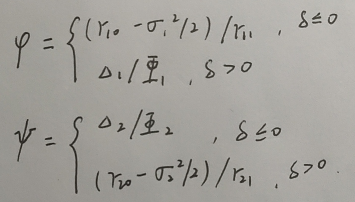 φ = { (r₁₀ - σ₁²/2)/r₁₁ , δ ≤ 0
Δ₁/Φ₁ , δ > 0
ψ = { Δ₂/Φ₂ , δ ≤ 0
(r₂₀ - σ₂²/2)/r₂₁ , δ > 0.